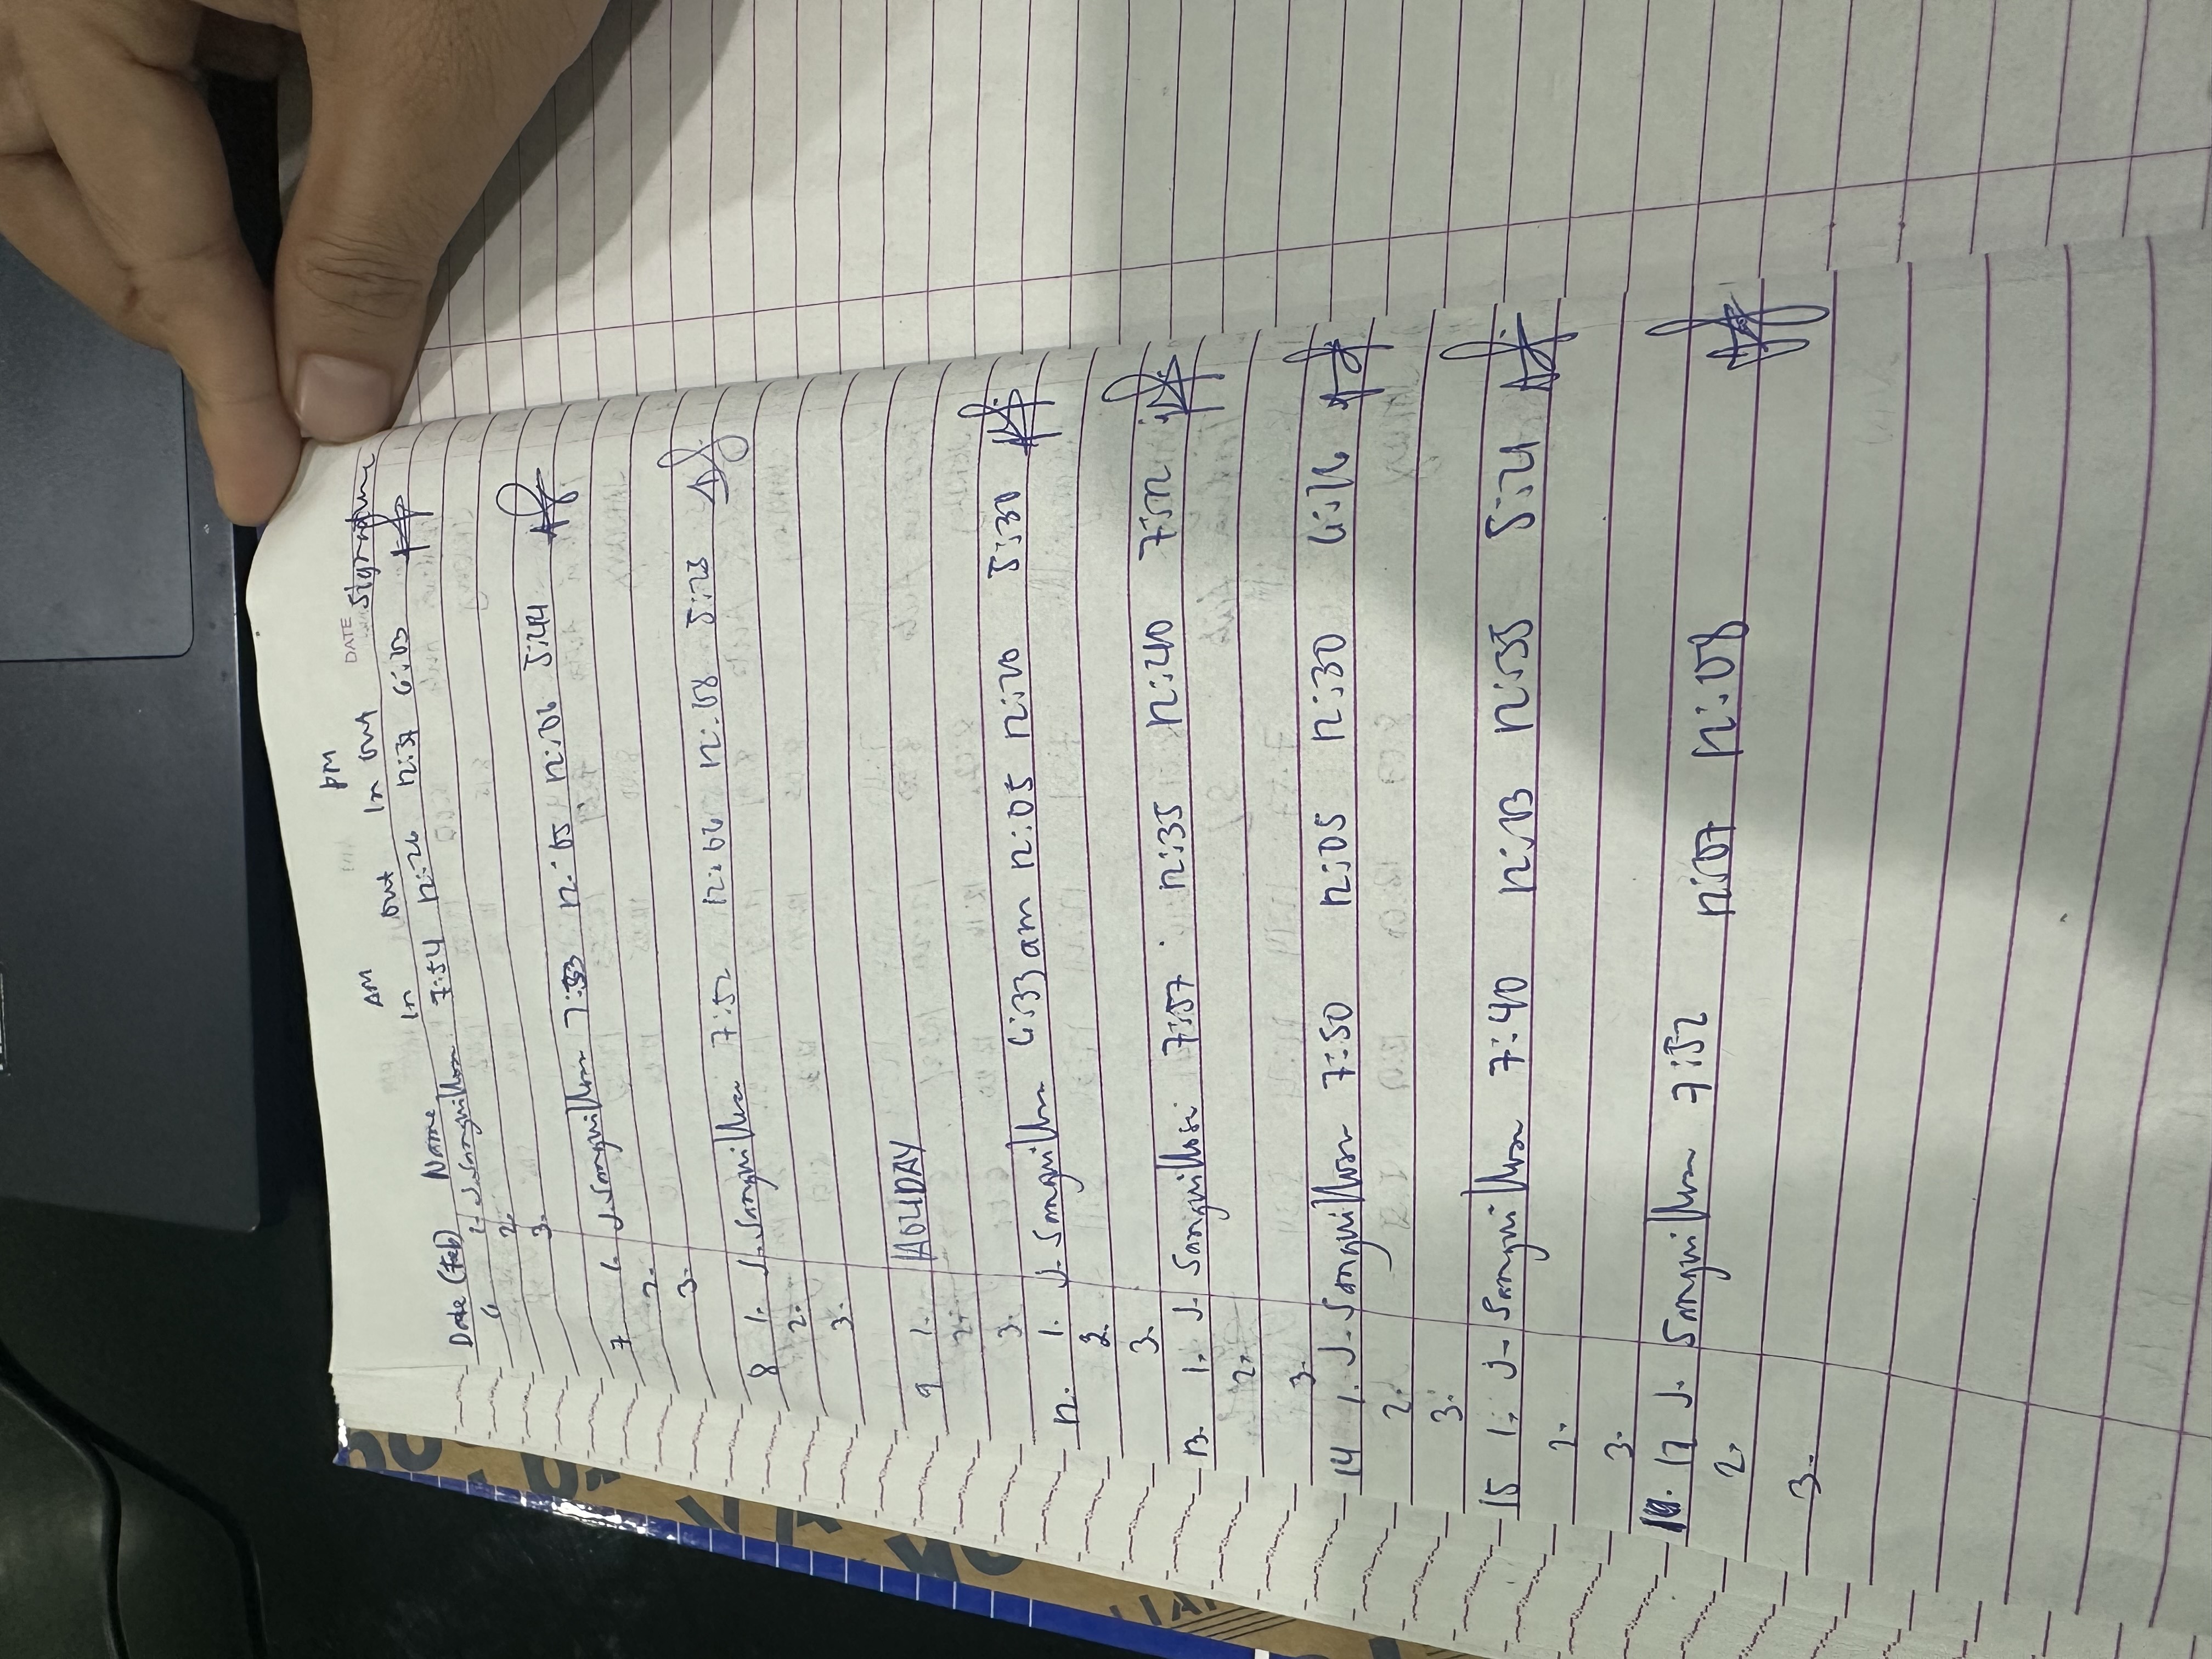 DATE
AM PM
Date (Feb) Name In Out In Out Signature
6 1. J. Sanquillosa 7:54 12:26 12:37 6:03
2.
3.
7 1. J. Sanquillosa 7:53 12:05 12:06 5:44
2.
3.
8 1. J. Sanquillosa 7:52 12:06 12:08 5:23
2.
3.
9 1. HOLIDAY
2.
3.
12. 1. J. Sanquillosa 6:33am 12:05 12:20 5:30
2.
3.
13. 1. J. Sanquillosa 7:57 12:35 12:40 7:02
2.
3.
14 1. J. Sanquillosa 7:50 12:05 12:30 6:16
2.
3.
15 1. J. Sanquillosa 7:40 12:13 12:35 5:21
2.
3.
J. Sanquillosa 7:52 12:07 12:08
2.
3.